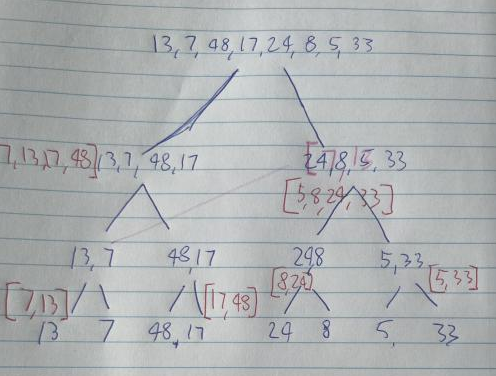 13, 7, 48, 17, 24, 8, 5, 33
7, 13, 17, 48] 13, 7, 48, 17 [24, 8, 5, 33
[5, 8, 24, 33]
13, 7 48, 17 24, 8 5, 33
[7, 13] [17, 48] [8, 24] [5, 33]
13 7 48, 17 24 8 5, 33